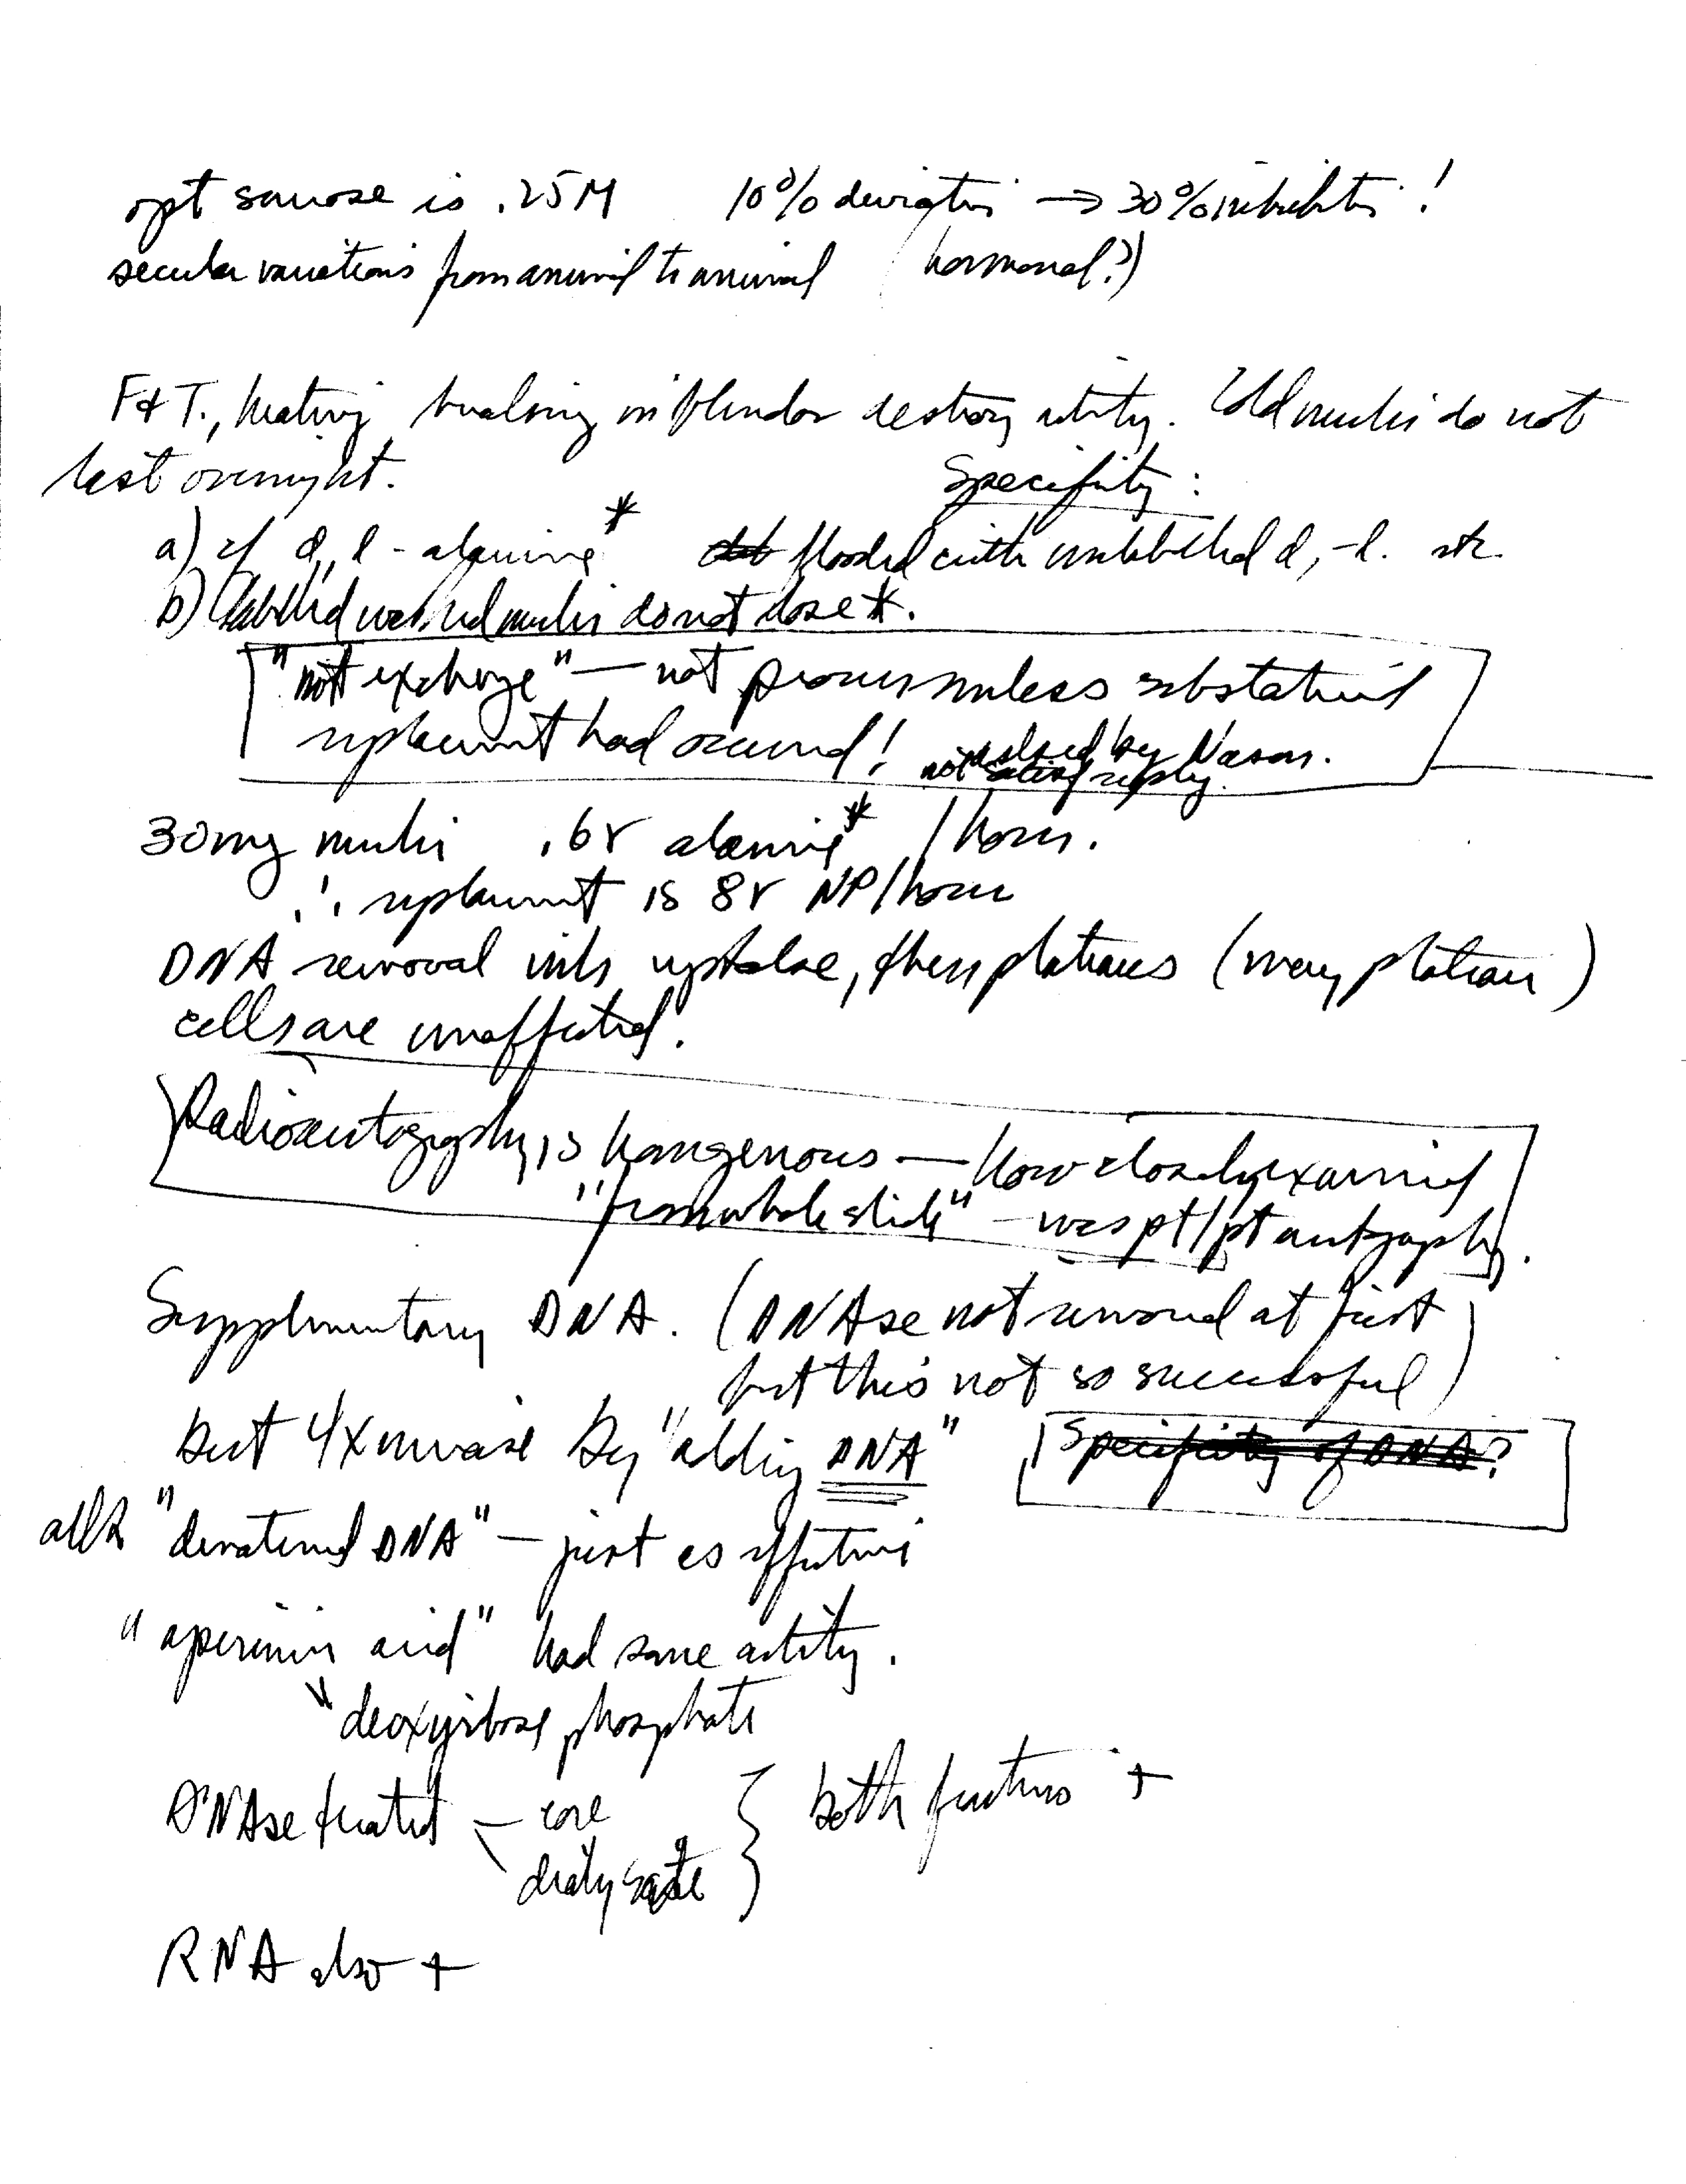 opt sucrose is .25M 10% deviation → 30% inhibition!
secular variations from animal to animal (hormonal?)
F&T., heating, breaking in blendor destroy activity. Cold nuclei do not
last overnight. Specificity:
a) if d, l-alanine* flooded with unlabelled d, -l. etc.
b) labelled washed nuclei do not lose *.
"not exchange" — not proven unless substantial
replacement had occurred! asked by Nason.
not satisf reply.
30mg nuclei .6γ alanine* / hour.
∴ replacement is 8γ NP/hour
DNA removal inh uptake, then plateaus (many plateau)
cells are unaffected.
Radioautography is homogenous — how closely examined
"from whole slide" — was pt/pt autography.
Supplementary DNA. (DNAse not removed at first
but this not so successful)
but 4x increase by "adding DNA" Specificity of DNA?
"denatured DNA" — just as effective
"apurinic acid" had same activity.
deoxyribose phosphate
DNAse treated — core } both fractions +
dialysate
RNA also +